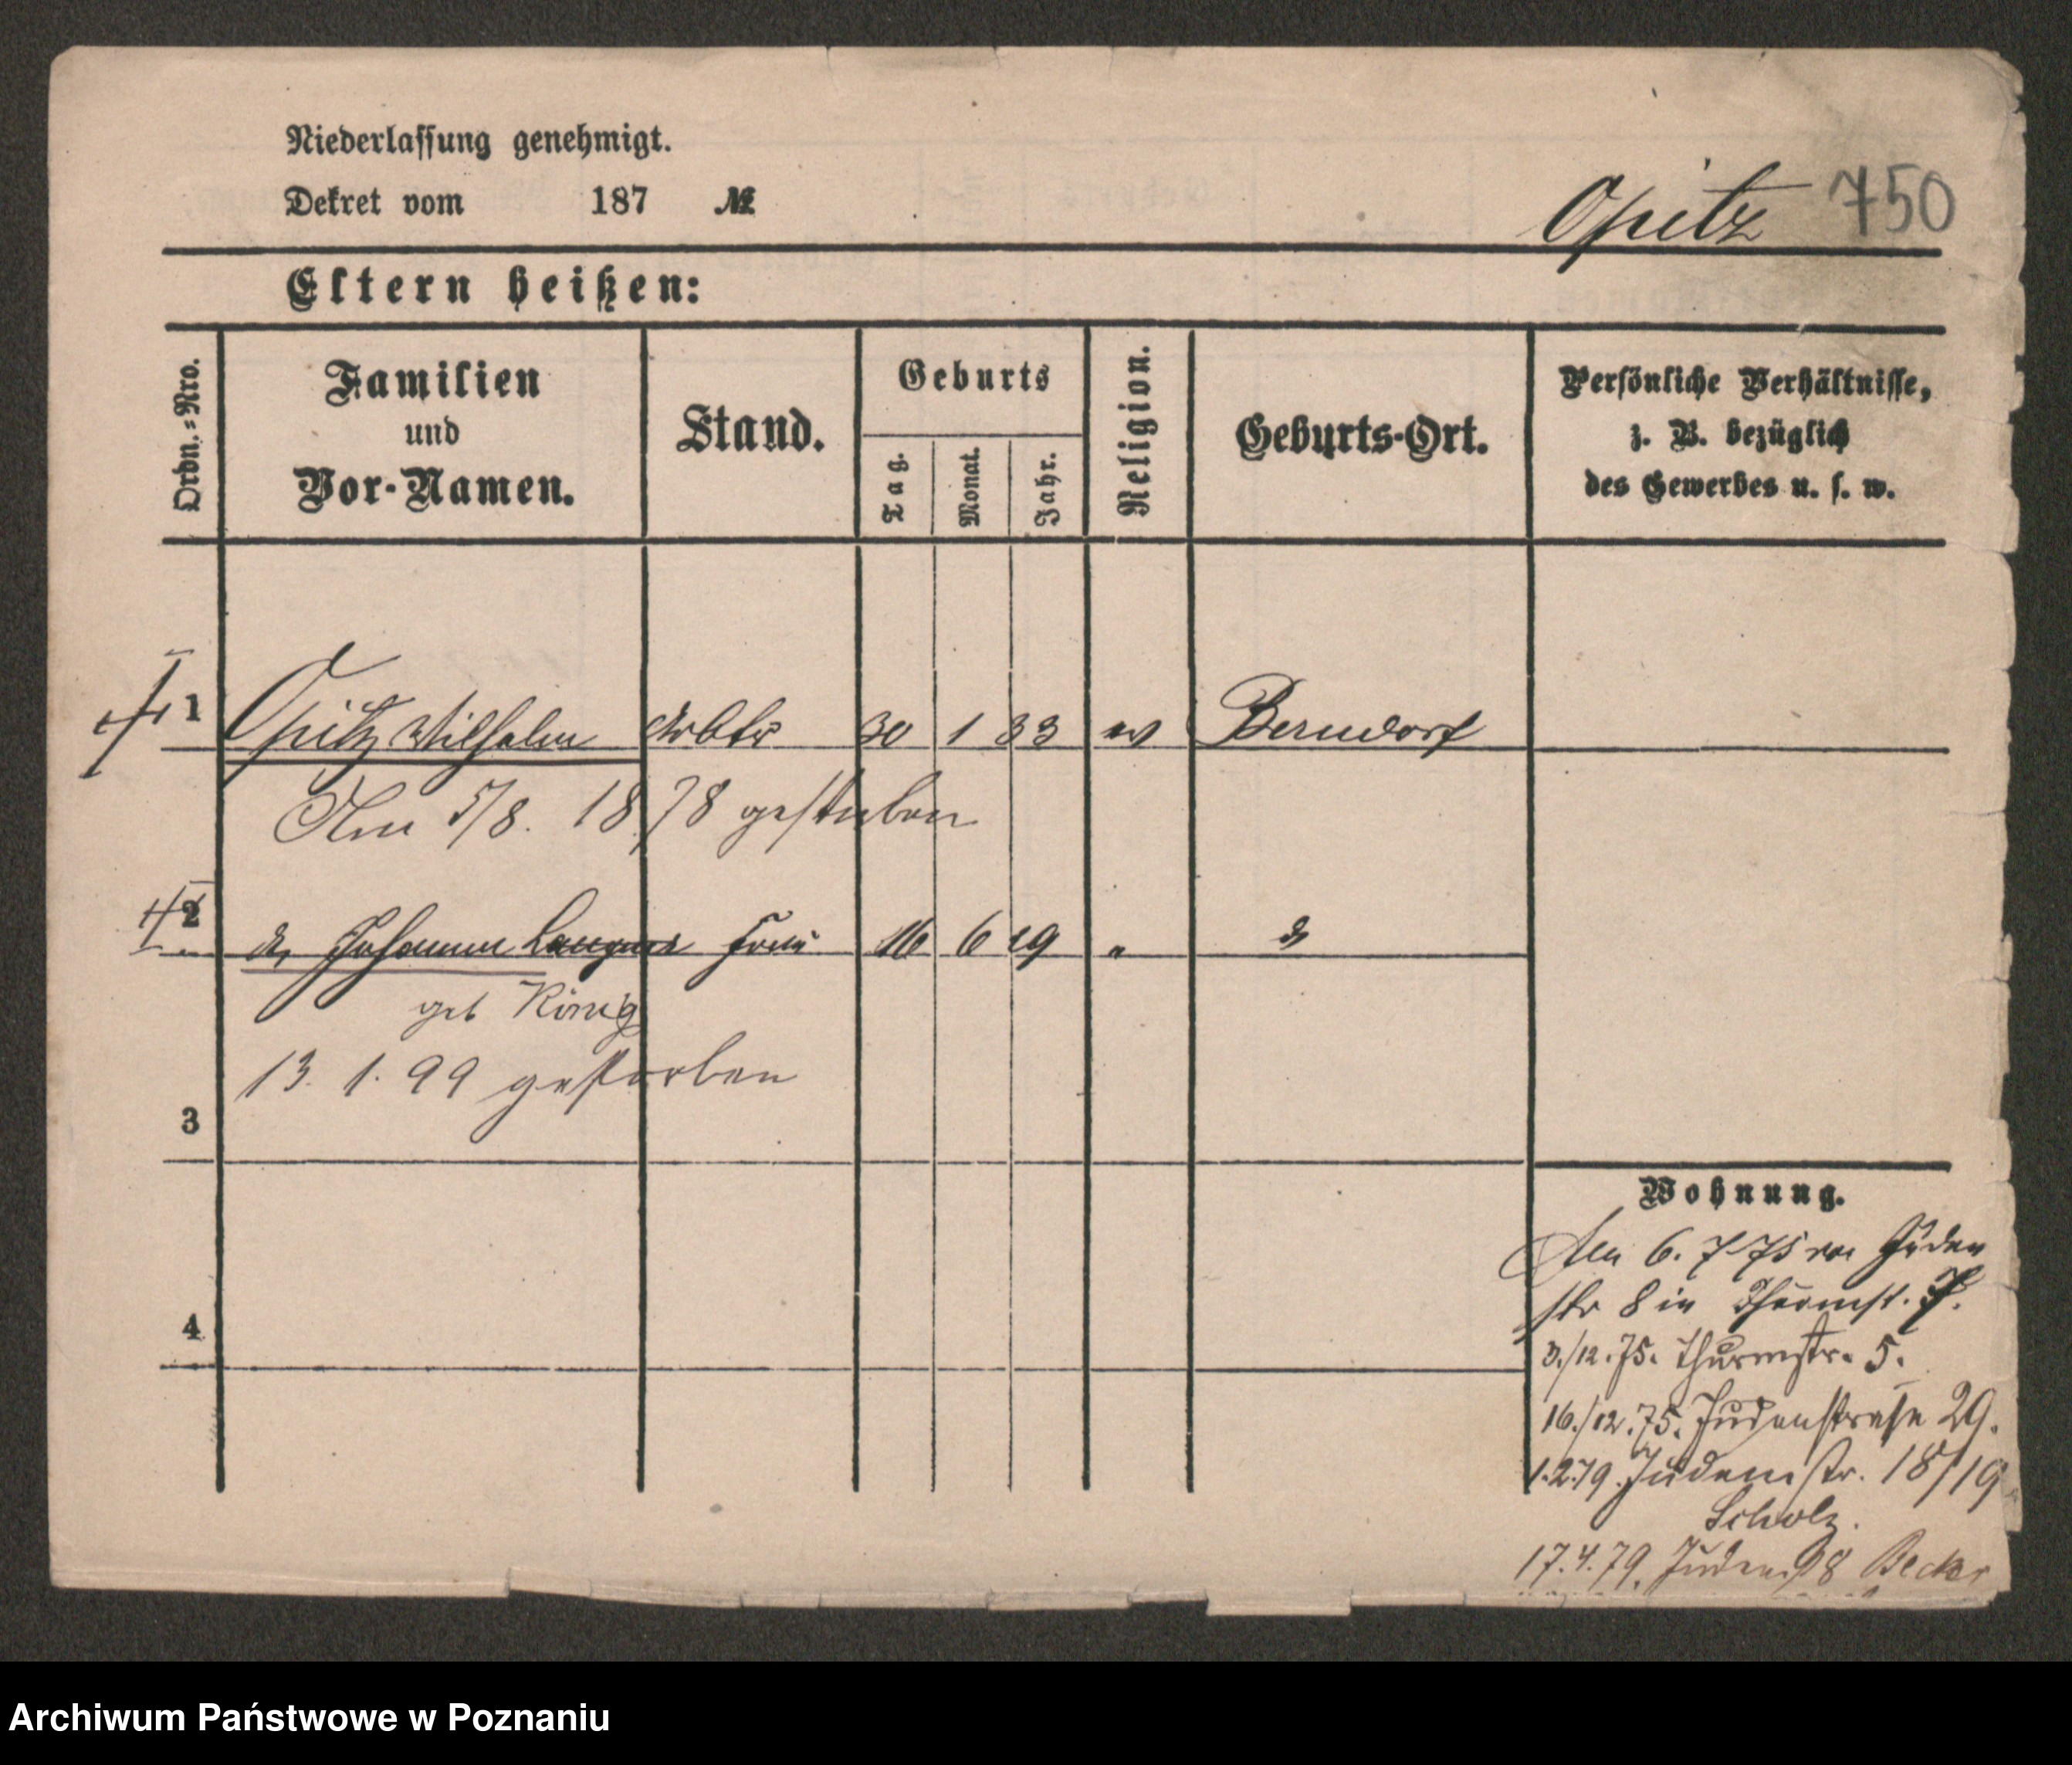 Niederlassung genehmigt.
Dekret vom 187 №
Opitz 750
Eltern heißen:
Ordn.-Nro.
Familien
und
Vor-Namen.
Stand.
Geburts
Tag.
Monat.
Jahr.
Religion.
Geburts-Ort.
Persönliche Verhältnisse,
z. B. bezüglich
des Gewerbes u. s. w.
1 Opitz Wilhelm Arbtr 30 1 33 ev Berndorf
Am 5/8. 1878 gestorben
2 Johanne Frau 16 6 19 "
geb König
13. 1. 99 gestorben
3
4
Wohnung.
Am 6. 7 75 von Juden
str 8 in Thurmst. 7.
3./12. 75. Thurmstr. 5.
16./12. 75. Judenstraße 29.
1.2.79. Judenstr. 18/19
Scholz.
17.4.79. Juden 98 Becker
Archiwum Państwowe w Poznaniu